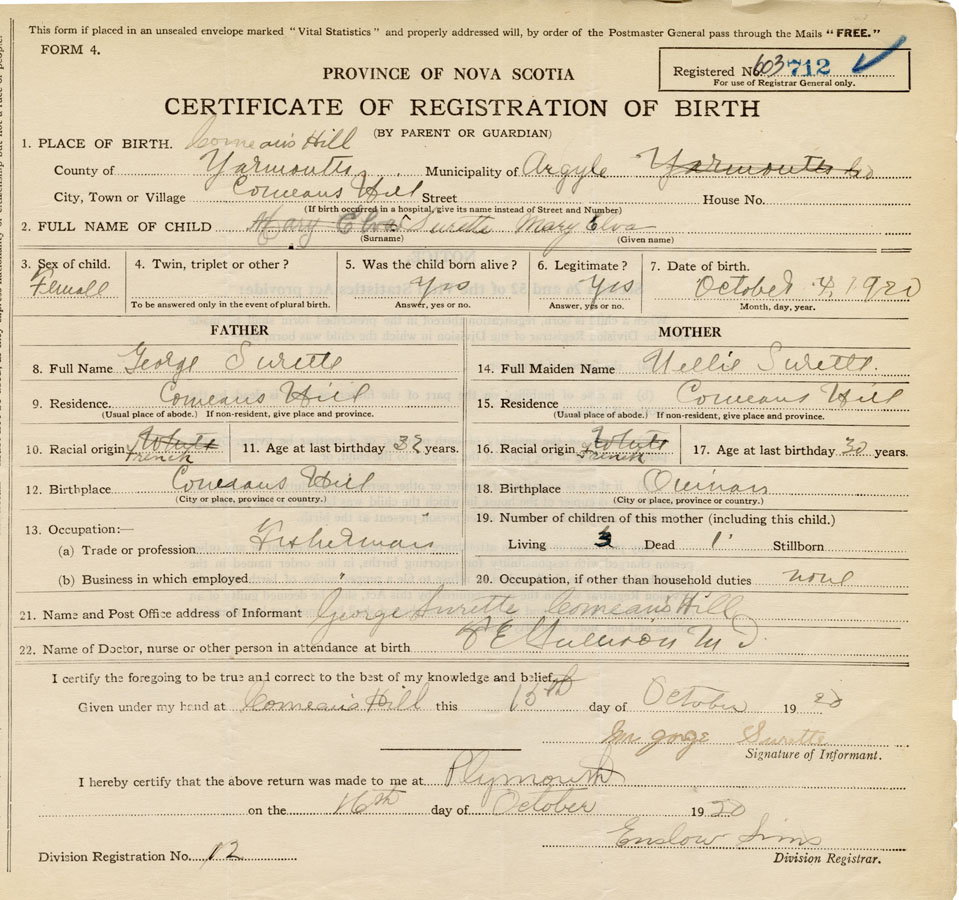 This form if placed in an unsealed envelope marked "Vital Statistics" and properly addressed will, by order of the Postmaster General pass through the Mails "FREE."
FORM 4.
Registered No. 603 712
For use of Registrar General only.
PROVINCE OF NOVA SCOTIA
CERTIFICATE OF REGISTRATION OF BIRTH
(BY PARENT OR GUARDIAN)
1. PLACE OF BIRTH. Comeau's Hill
County of Yarmouth Municipality of Argyle Yarmouth Co
City, Town or Village Comeaus Hill Street House No.
(If birth occurred in a hospital, give its name instead of Street and Number)
2. FULL NAME OF CHILD Mary Elva Surette Mary Elva
(Surname) (Given name)
3. Sex of child. 4. Twin, triplet or other? 5. Was the child born alive? 6. Legitimate? 7. Date of birth.
Femall Yes Yes October 4, 1920
To be answered only in the event of plural birth. Answer, yes or no. Answer, yes or no. Month, day, year.
FATHER
8. Full Name George Surette
9. Residence. Comeaus Hill
(Usual place of abode.) If non-resident, give place and province.
10. Racial origin White French 11. Age at last birthday 32 years.
12. Birthplace Comeaus Hill
(City or place, province or country.)
13. Occupation:—
(a) Trade or profession Fisherman
(b) Business in which employed "
MOTHER
14. Full Maiden Name Nellie Surette.
15. Residence Comeaus Hill
(Usual place of abode.) If non-resident, give place and province.
16. Racial origin White French 17. Age at last birthday 30 years.
18. Birthplace Quinan
(City or place, province or country.)
19. Number of children of this mother (including this child.)
Living 3 Dead 1 Stillborn
20. Occupation, if other than household duties none
21. Name and Post Office address of Informant George Surette Comeau's Hill
22. Name of Doctor, nurse or other person in attendance at birth M D
I certify the foregoing to be true and correct to the best of my knowledge and belief.
Given under my hand at Comeau's Hill this 15th day of October 1920
Mr gorge Surette
Signature of Informant.
I hereby certify that the above return was made to me at Plymouth
on the 16th day of October 1920
Enslow Sims
Division Registrar.
Division Registration No. 12